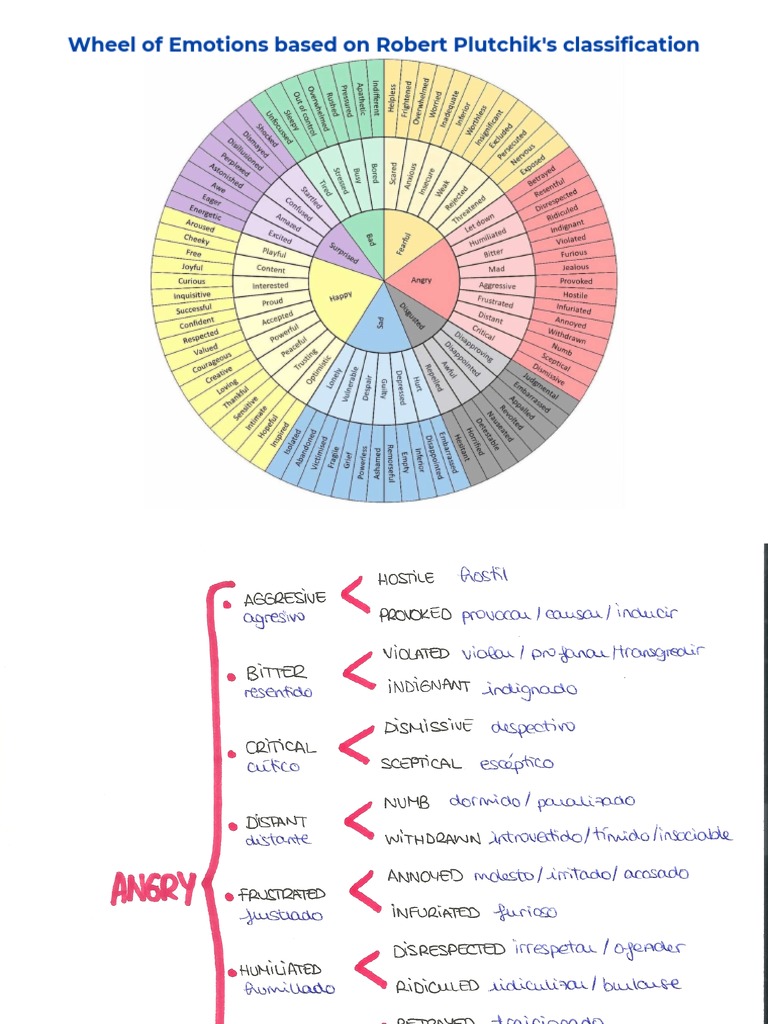 Wheel of Emotions based on Robert Plutchik's classification
Helpless
Frightened
Overwhelmed
Worried
Inadequate
Inferior
Worthless
Insignificant
Excluded
Persecuted
Nervous
Exposed
Betrayed
Resentful
Disrespected
Ridiculed
Indignant
Violated
Furious
Jealous
Provoked
Hostile
Infuriated
Annoyed
Withdrawn
Numb
Sceptical
Dismissive
Judgmental
Embarrassed
Appalled
Revolted
Nauseated
Detestable
Horrified
Hesitant
Embarrassed
Disappointed
Inferior
Empty
Remorseful
Ashamed
Powerless
Grief
Fragile
Victimised
Abandoned
Isolated
Inspired
Hopeful
Intimate
Sensitive
Thankful
Loving
Creative
Courageous
Valued
Respected
Confident
Successful
Inquisitive
Curious
Joyful
Free
Cheeky
Aroused
Energetic
Eager
Awe
Astonished
Perplexed
Disillusioned
Dismayed
Shocked
Unfocussed
Sleepy
Out of control
Overwhelmed
Rushed
Pressured
Apathetic
Indifferent
Scared
Anxious
Insecure
Weak
Rejected
Threatened
Let down
Humiliated
Bitter
Mad
Aggressive
Frustrated
Distant
Critical
Disapproving
Disappointed
Awful
Repelled
Hurt
Depressed
Guilty
Despair
Vulnerable
Lonely
Optimistic
Trusting
Peaceful
Powerful
Accepted
Proud
Interested
Content
Playful
Excited
Amazed
Confused
Startled
Tired
Stressed
Busy
Bored
Fearful
Angry
Disgusted
Sad
Happy
Surprised
Bad
ANGRY
AGGRESIVE
agresivo
HOSTILE hostil
PROVOKED provocar/causar/inducir
BITTER
resentido
VIOLATED violar/profanar/transgredir
INDIGNANT indignado
CRITICAL
crítico
DISMISSIVE despectivo
SCEPTICAL escéptico
DISTANT
distante
NUMB dormido/paralizado
WITHDRAWN introvertido/tímido/insociable
FRUSTRATED
frustrado
ANNOYED molesto/irritado/acosado
INFURIATED furioso
HUMILIATED
humillado
DISRESPECTED irrespetar/ofender
RIDICULED ridiculizar/burlarse
BETRAYED traicionado